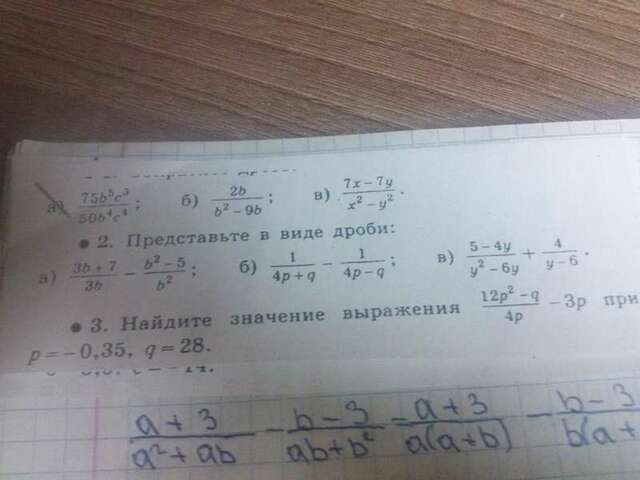 а) 75b⁵c³/50b⁴c⁴; б) 2b/b² − 9b; в) 7x − 7y/x² − y².
• 2. Представьте в виде дроби:
а) 3b + 7/3b − b² − 5/b²; б) 1/4p + q − 1/4p − q; в) 5 − 4y/y² − 6y + 4/y − 6.
• 3. Найдите значение выражения 12p² − q/4p − 3p при
p = − 0,35, q = 28.
a + 3/a² + ab − b − 3/ab + b² = a + 3/a(a + b) − b − 3/b(a +